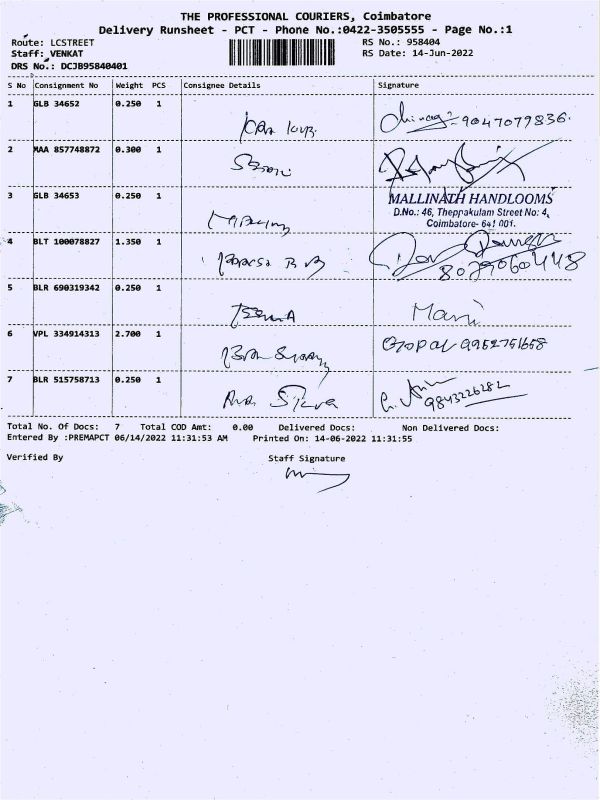 THE PROFESSIONAL COURIERS, Coimbatore
Delivery Runsheet - PCT - Phone No.:0422-3505555 - Page No.:1
Route: LCSTREET RS No.: 958404
Staff: VENKAT RS Date: 14-Jun-2022
DRS No.: DCJB95840401
S No Consignment No Weight PCS Consignee Details Signature
1 GLB 34652 0.250 1 9047079836
2 MAA 857748872 0.300 1
3 GLB 34653 0.250 1 MALLINATH HANDLOOMS
D.No.: 46, Theppakulam Street No: 4,
Coimbatore- 641 001.
4 BLT 100078827 1.350 1
5 BLR 690319342 0.250 1 Mani
6 VPL 334914313 2.700 1 Gopal 9952751658
7 BLR 515758713 0.250 1 9843226282
Total No. Of Docs: 7 Total COD Amt: 0.00 Delivered Docs: Non Delivered Docs:
Entered By :PREMAPCT 06/14/2022 11:31:53 AM Printed On: 14-06-2022 11:31:55
Verified By Staff Signature